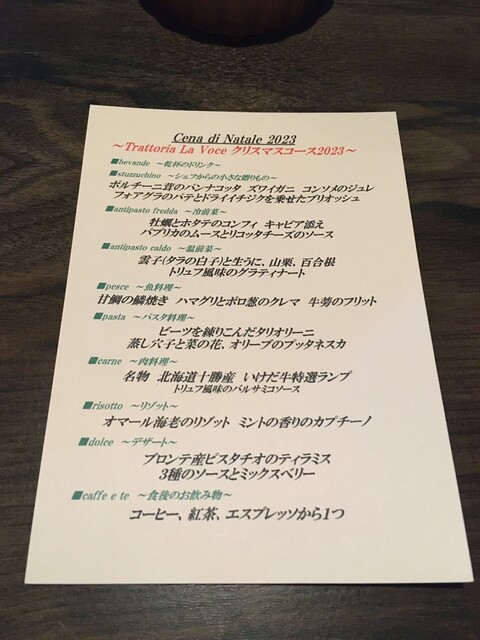 Cena di Natale 2023
～Trattoria La Voce クリスマスコース2023～
■bevande ～乾杯のドリンク～
■stuzzuchino ～シェフからの小さな贈りもの～
ポルチーニ茸のパンナコッタ ズワイガニ コンソメのジュレ
フォアグラのパテとドライイチジクを乗せたブリオッシュ
■antipasto fredda ～冷前菜～
牡蠣とホタテのコンフィ キャビア添え
パプリカのムースとリコッタチーズのソース
■antipasto caldo ～温前菜～
雲子(タラの白子)と生うに、山栗、百合根
トリュフ風味のグラティナート
■pesce ～魚料理～
甘鯛の鱗焼き ハマグリとポロ葱のクレマ 牛蒡のフリット
■pasta ～パスタ料理～
ビーツを練りこんだタリオリーニ
蒸し穴子と菜の花、オリーブのプッタネスカ
■carne ～肉料理～
名物 北海道十勝産 いけだ牛特選ランプ
トリュフ風味のバルサミコソース
■risotto ～リゾット～
オマール海老のリゾット ミントの香りのカプチーノ
■dolce ～デザート～
ブロンテ産ピスタチオのティラミス
3種のソースとミックスベリー
■caffe e te ～食後のお飲み物～
コーヒー、紅茶、エスプレッソから1つ